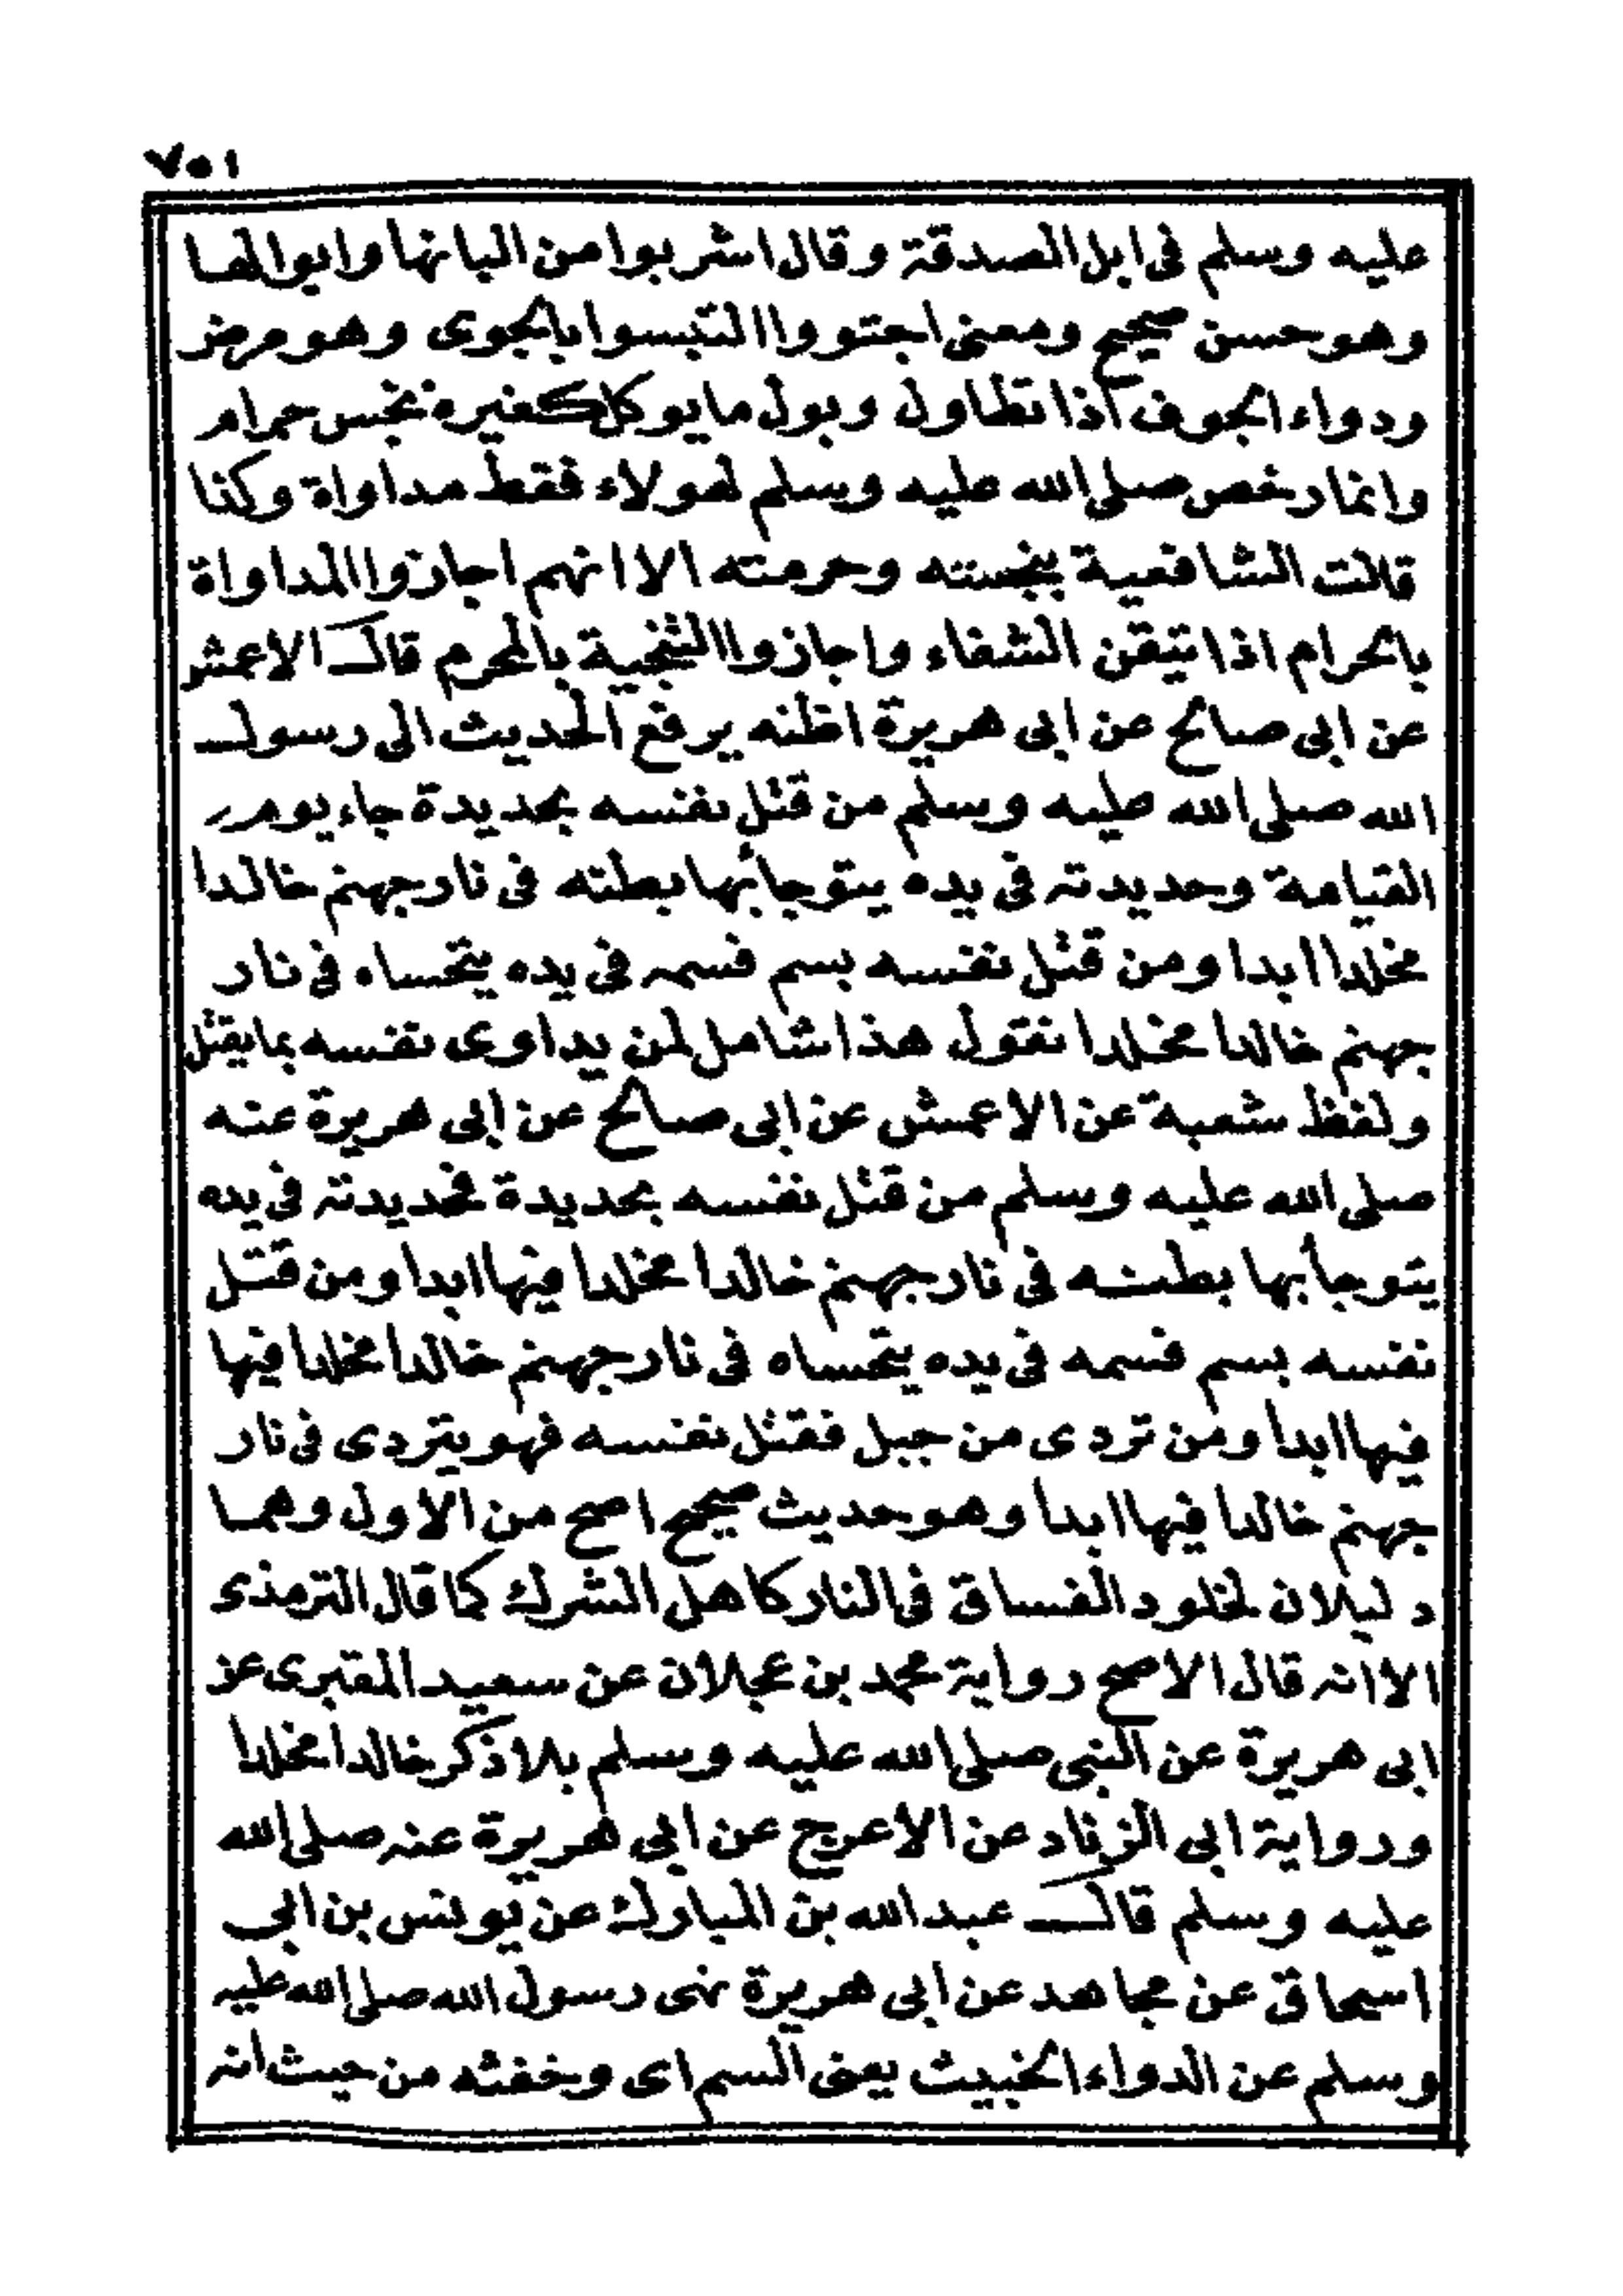 ٧٥١
عليه وسلم فى ابل الصدقة وقال اشربوا من البانها وابوالها
وهو حسن صحيح ومعنى اجتووا التبسوا بالجوى وهو مرض
وداء الجوف اذا تطاول وبول ما يوكل كغيره نجس حرام
وانما رخص صلى الله عليه وسلم لهولاء فقط مداواة وكذا
قالت الشافعية بنجسته وحرمته الا انهم اجازوا المداواة
بالحرام اذا تيقن الشفاء واجازوا التنجية بالمحرم قال الاعمش
عن ابى صالح عن ابى هريرة اظنه يرفع الحديث الى رسول
الله صلى الله عليه وسلم من قتل نفسه بحديدة جاء يوم
القيامة وحديدته فى يده يتوجأ بها بطنه فى نار جهنم خالدا
مخلدا ابدا ومن قتل نفسه بسم فسمه فى يده يتحساه فى نار
جهنم خالدا مخلدا نقول هذا شامل لمن يداوى نفسه بما يقتل
ولفظ شعبة عن الاعمش عن ابى صالح عن ابى هريرة عنه
صلى الله عليه وسلم من قتل نفسه بحديدة فحديدته فى يده
يتوجأ بها بطنه فى نار جهنم خالدا مخلدا فيها ابدا ومن قتل
نفسه بسم فسمه فى يده يتحساه فى نار جهنم خالدا مخلدا فيها
فيها ابدا ومن تردى من جبل فقتل نفسه فهو يتردى فى نار
جهنم خالدا فيها ابدا وهو حديث صحيح اصح من الاول وهما
دليلان لخلود الفساق فى النار كاهل الشرك كما قال الترمذى
الا انه قال الاصح رواية محمد بن عجلان عن سعيد المقبرى عن
ابى هريرة عن النبى صلى الله عليه وسلم بلا ذكر خالدا مخلدا
ورواية ابى الزناد عن الاعرج عن ابى هريرة عنه صلى الله
عليه وسلم قال عبد الله بن المبارك عن يونس بن ابى
اسحاق عن مجاهد عن ابى هريرة نهى رسول الله صلى الله عليه
وسلم عن الدواء الخبيث يعنى السم اى وخفثه من حيث انه